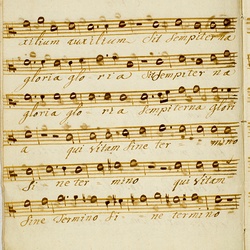 xilium auxilium. Sit Sempiterna
gloria glo ria Sit Sempiter na
gloria glo ria Sempiterna glori
a qui vitam sine ter mino
Si ne ter mino qui vitam
Sine Termino Si ne termino